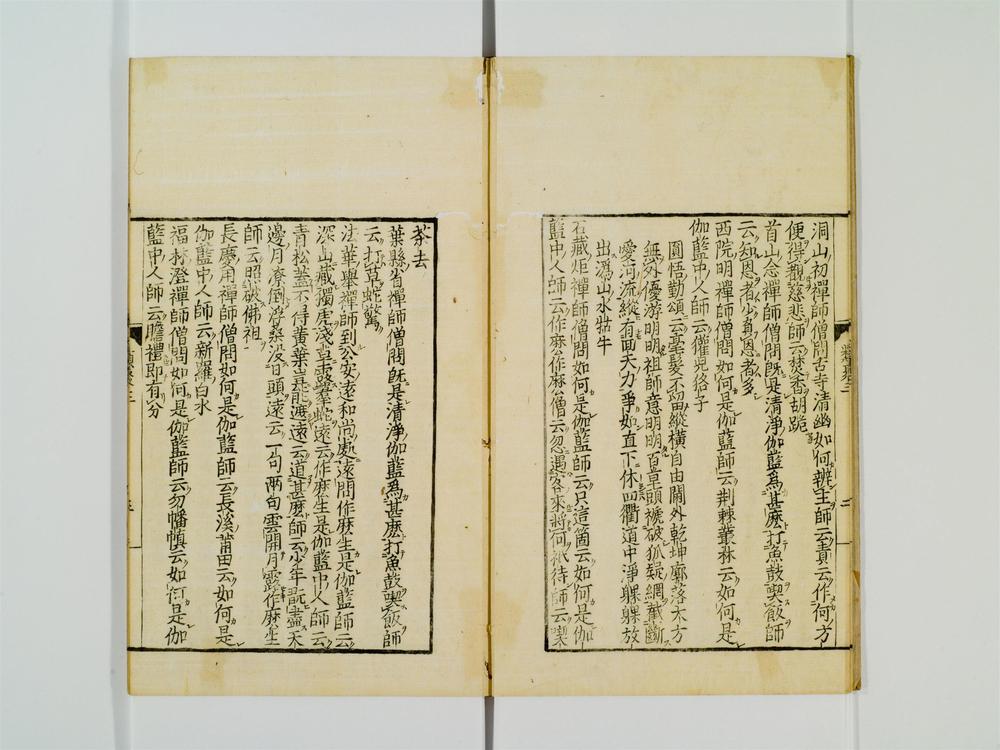 洞山初禪師僧問古寺清幽如何辨主師云責云作何方
便得覩慈悲師云焚香胡跪
首山念禪師僧問既是清淨伽藍爲甚麽打魚鼓喫飯師
云知恩者少負恩者多
西院明禪師僧問如何是伽藍師云荆棘叢林云如何是
伽藍中人師云獾兒狢子
圓悟勤頌云毫髮不留縱橫自由闌外乾坤廓落大方
無外優游明明祖師意明明百草頭褫破狐疑網截斷
愛河流縱有回天力爭如直下休四衢道中淨躶躶放
出潙山水牯牛
石藏炬禪師僧問如何是伽藍師云只這箇云如何是伽
藍中人師云作麽作麽僧云忽遇客來將何祇待師云喫
茶去
葉縣省禪師僧問既是清淨伽藍爲甚麽打魚鼓喫飯師
云打草蛇驚
法華舉禪師到公安遠和尚處遠問作麽生是伽藍師云
深山藏獨虎淺草露羣蛇遠云作麽生是伽藍中人師云
青松蓋不得黃葉豈能遮遠云道甚麽師云少年翫盡天
邊月潦倒浮桑没日頭遠云一句兩句雲開月露作麽生
師云照破佛祖
長慶用禪師僧問如何是伽藍師云長溪莆田云如何是
伽藍中人師云新羅白水
福林澄禪師僧問如何是伽藍師云勿幡慎云如何是伽
藍中人師云瞻禮即有分